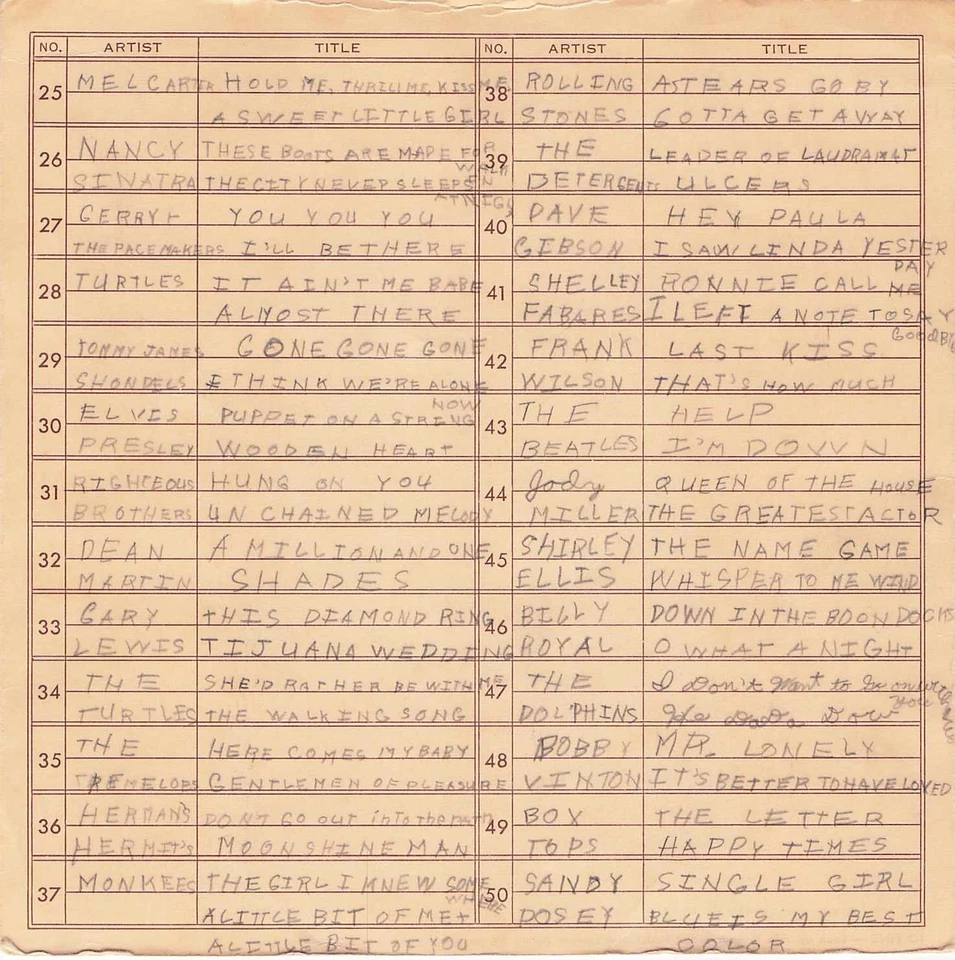 NO. ARTIST TITLE NO. ARTIST TITLE
25 MEL CARTER HOLD ME, THRILL ME, KISS ME
A SWEET LITTLE GIRL
26 NANCY THESE BOOTS ARE MADE FOR
WALKEN
SINATRA THE CITY NEVER SLEEPS
AT NIGS
27 GERRY + YOU YOU YOU
THE PACEMAKERS I'LL BE THERE
28 TURTLES IT AIN'T ME BABE
ALMOST THERE
29 TOMMY JAMES GONE GONE GONE
SHONDELS I THINK WE'RE ALONE
NOW
30 ELVIS PUPPET ON A STRING
PRESLEY WOODEN HEART
31 RIGHTEOUS HUNG ON YOU
BROTHERS UN CHAINED MELODY
32 DEAN A MILLION AND ONE
MARTIN SHADES
33 GARY THIS DIAMOND RING
LEWIS TIJUANA WEDDING
34 THE SHE'D RATHER BE WITH ME
TURTLES THE WALKING SONG
35 THE HERE COMES MY BABY
TREMELOES GENTLEMEN OF PLEASURE
36 HERMAN'S DON'T GO out into the rain
HERMIT'S MOONSHINE MAN
37 MONKEES THE GIRL I KNEW SOME
WHERE
A LITTLE BIT OF ME +
A LITTLE BIT OF YOU
38 ROLLING AS TEARS GO BY
STONES GOTTA GET AWAY
39 THE LEADER OF LAUDRAMAT
DETERGENTS ULCERS
40 DAVE HEY PAULA
GIBSON I SAW LINDA YESTER
DAY
41 SHELLEY RONNIE CALL ME
FABARES I LEFT A NOTE TO SAY
GOODBIE
42 FRANK LAST KISS
WILSON THAT'S HOW MUCH
43 THE HELP
BEATLES I'M DOWN
44 Jody QUEEN OF THE HOUSE
MILLER THE GREATEST ACTOR
45 SHIRLEY THE NAME GAME
ELLIS WHISPER TO ME WIND
46 BILLY DOWN IN THE BOONDOCKS
ROYAL O WHAT A NIGHT
47 THE I Don't Want to Go on with
you
DOLPHINS Hey Dada Dow
48 BOBBY MR. LONELY
VINTON IT'S BETTER TO HAVE LOVED
49 BOX THE LETTER
TOPS HAPPY TIMES
50 SANDY SINGLE GIRL
POSEY BLUE IS MY BEST
COLOR